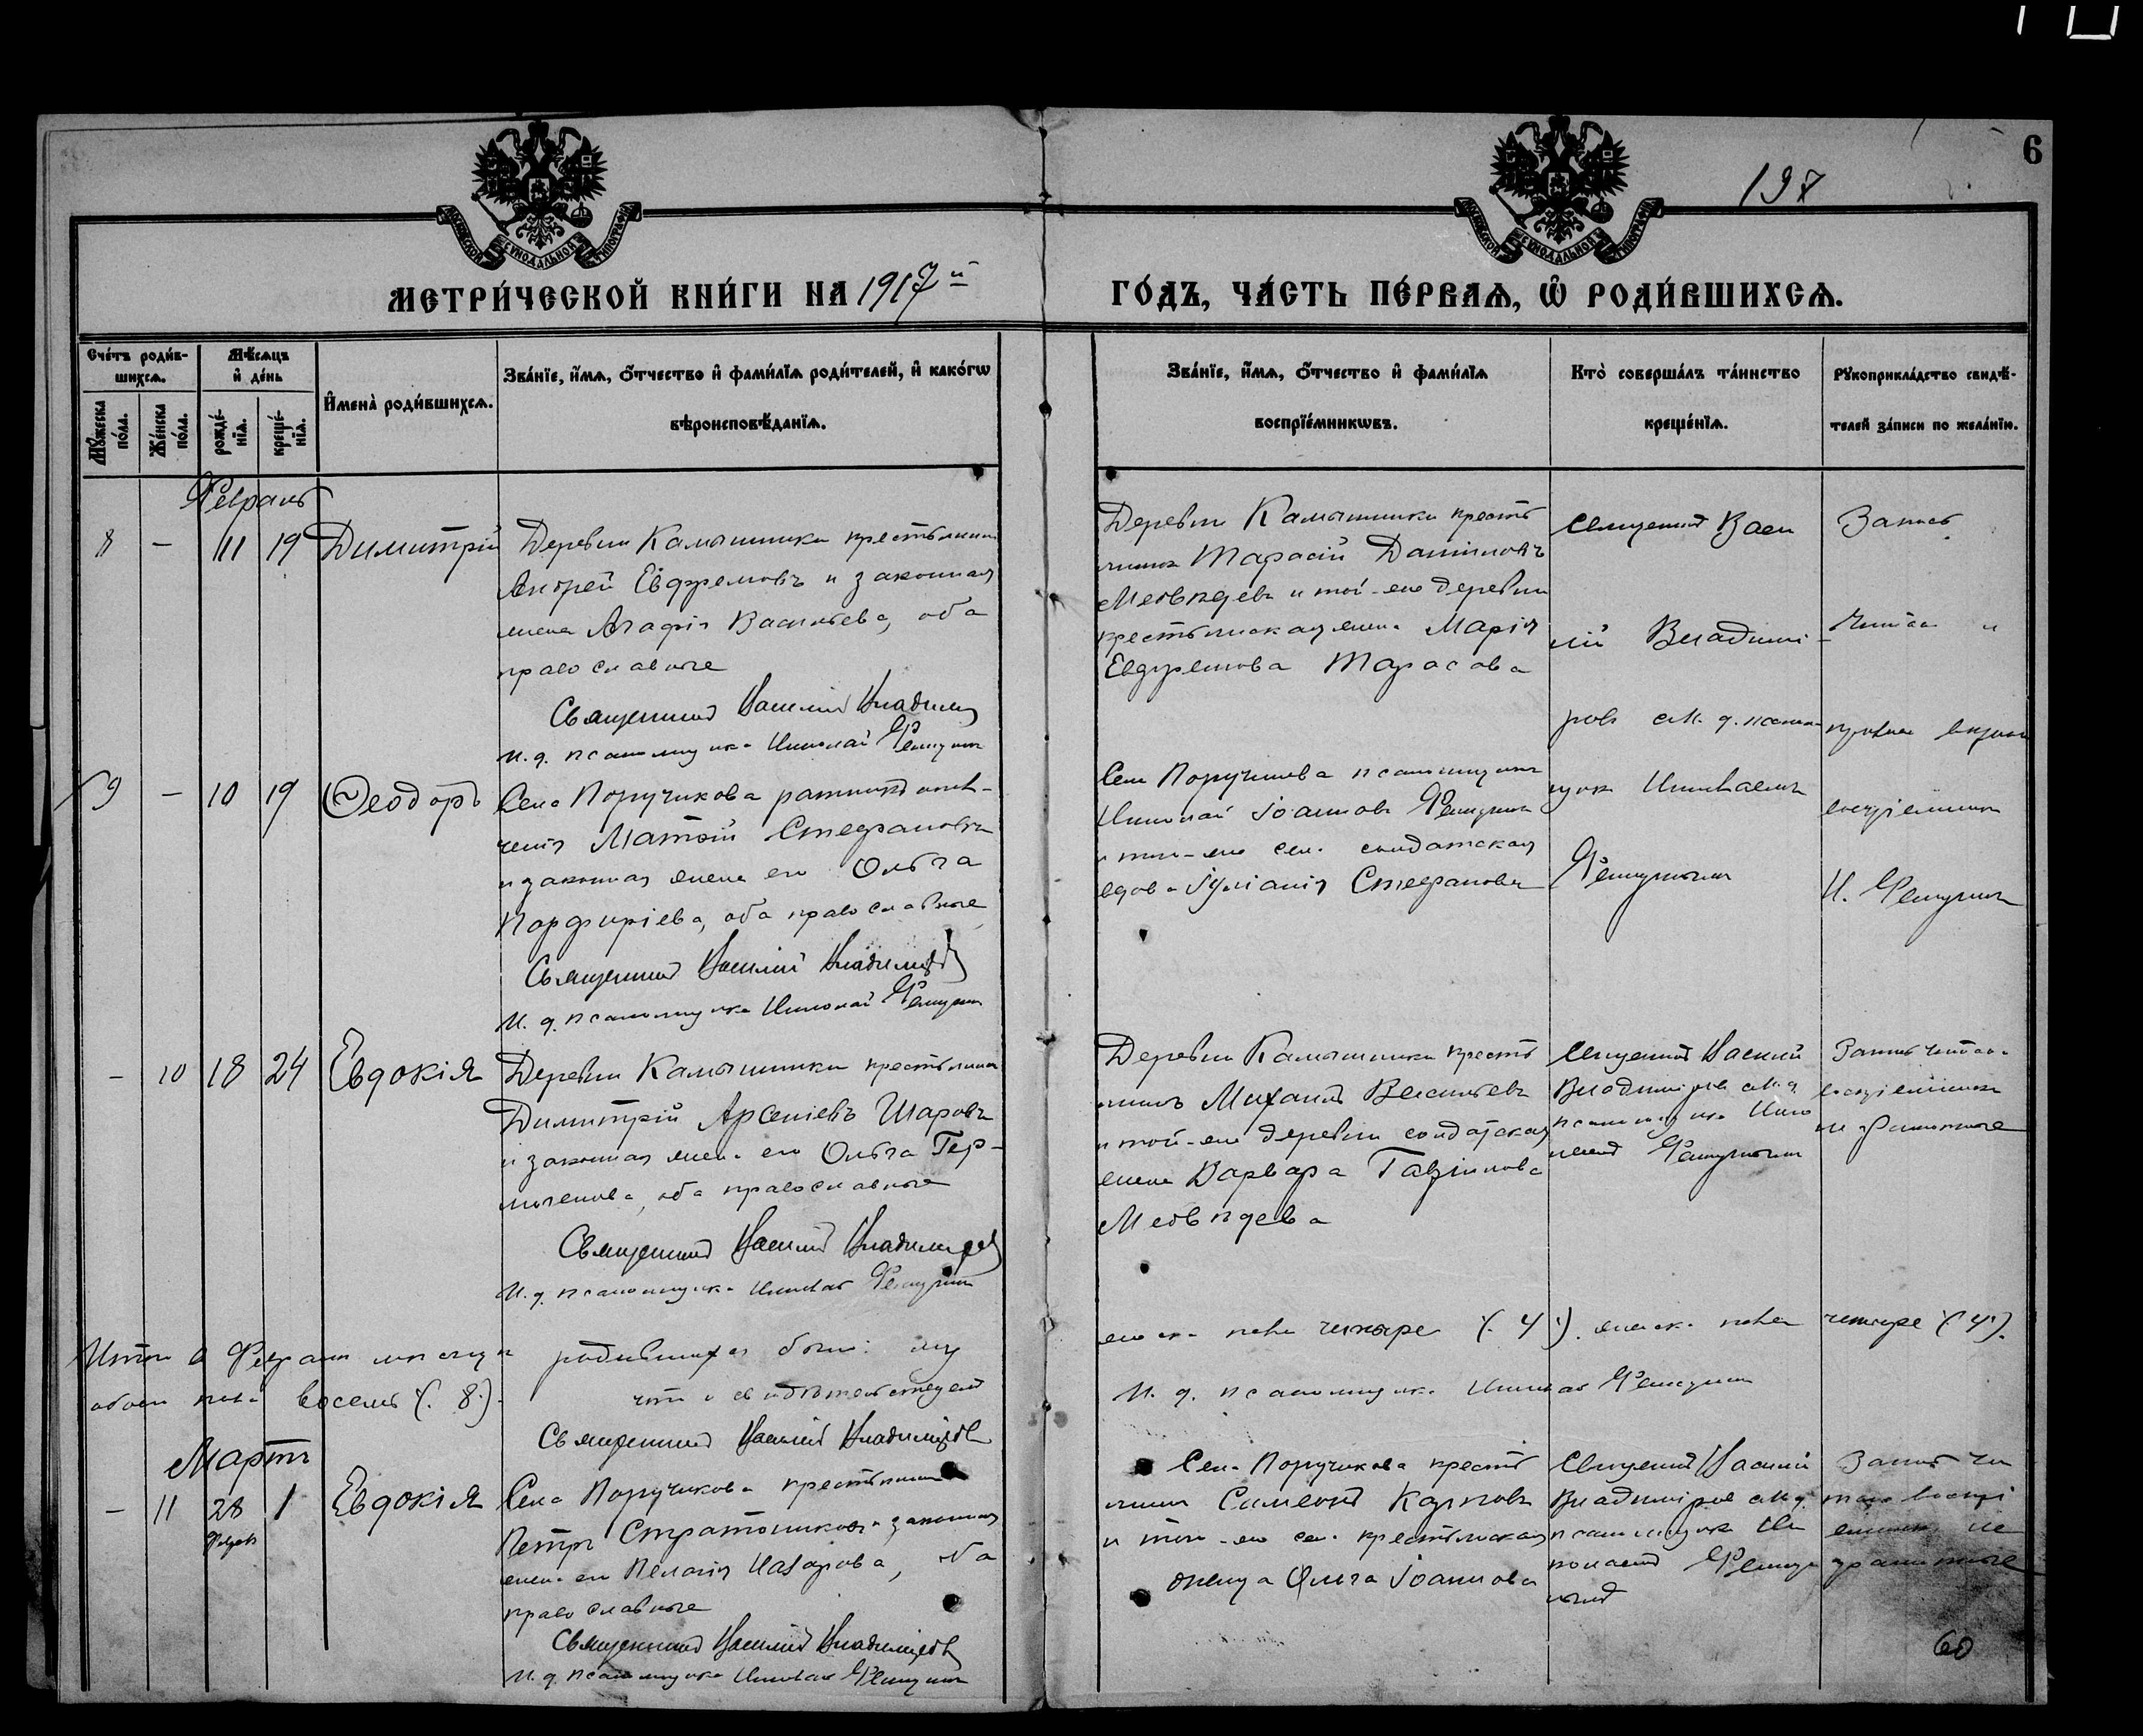 6
197
МОСКОВСКОЙ СУНОДАЛЬНОЙ ТИПОГРАФІИ
МОСКОВСКОЙ СУНОДАЛЬНОЙ ТИПОГРАФІИ
МЕТРИ́ЧЕСКОЙ КНИ́ГИ НА 1917й ГО́ДЪ, ЧА́СТЬ ПЕ́РВАѦ, Ѡ҆ РОДИ́ВШИХСѦ.
Сче́тъ роди́в-
шихсѧ.
Мꙋ́жеска по́ла.
Же́нска по́ла.
Мѣ́сѧцъ
и҆ де́нь
рожде́-
нїѧ.
креще́-
нїѧ.
И҆мена̀ роди́вшихсѧ.
Зва́нїе, и҆́мѧ, ѻ҆́тчество и҆ фами́лїѧ роди́телей, и҆ како́гѡ
вѣроисповѣ́данїѧ.
Зва́нїе, и҆́мѧ, ѻ҆́тчество и҆ фами́лїѧ
воспрїе́мникѡвъ.
Кто̀ соверша́лъ та́инство
креще́нїѧ.
Рꙋкоприкла́дство свидѣ́-
телей за́писи по жела́нїю.
Февраль
8 — 11 19 Димитрій
Деревни Камышинки крестьянинъ
Андрей Евфремовъ и законная
жена Агафія Васильева, оба
православные
Священникъ Василій Владиміровъ
И. д. псаломщика Николай
Деревни Камышинки кресть
янинъ Тарасій Даниловъ
Медвѣдевъ и той-же деревни
крестьянская жена Марія
Евфремова Тарасова
Священникъ Васи
лій Владимі-
ровъ с И. д. псалом
щика Николаемъ
Запись
читалъ и
воспріемникъ
Н.
9 — 10 19 Ѳеодоръ
Села Поручикова ратникъ ополч-
ченія Матѳій Стефановъ
и законная жена его Ольга
Порфиріева, оба православные
Священникъ Василій Владиміровъ
И. д. псаломщика Николай
Села Поручикова псаломщикъ
Николай Іоанновъ
и того-же села солдатская
вдова Іуліанія Стефанова
— 10 18 24 Евдокія
Деревни Камышинки крестьянинъ
Димитрій Арсеніевъ Шаровъ
и законная жена его Ольга Гер-
могенова, оба православные
Священникъ Василій Владиміровъ
И. д. псаломщика Николай
Деревни Камышинки кресть
янинъ Михаилъ Васильевъ
и той-же деревни солдатская
жена Варвара Гавріилова
Медвѣдева
Священникъ Василій
Владиміровъ с И. д.
псаломщика Нико
лаемъ
Запись читалъ
воспріемники
неграмотные
Итого въ Февралѣ мѣсяцѣ родившихся было: муж
еска пола четыре (. 4 .). женска пола четыре (. 4 .).
обоего пола восемь (. 8 .).
что и свидѣтельствуемъ
Священникъ Василій Владиміровъ
И. д. псаломщика Николай
Мартъ
— 11 28 1 Евдокія
Февраль
Села Поручикова крестьянинъ
Петръ Стратониковъ и законная
жена его Пелагія Назарова, оба
православные
Священникъ Василій Владиміровъ
И. д. псаломщика Николай
Села Поручикова кресть
янинъ Симеонъ Карповъ
и того-же села крестьянская
дѣвица Ольга Іоаннова
Священникъ Василій
Владиміровъ с И. д.
псаломщика Ни
колаемъ
Запись чи
талъ воспрі
емники не
грамотные
60